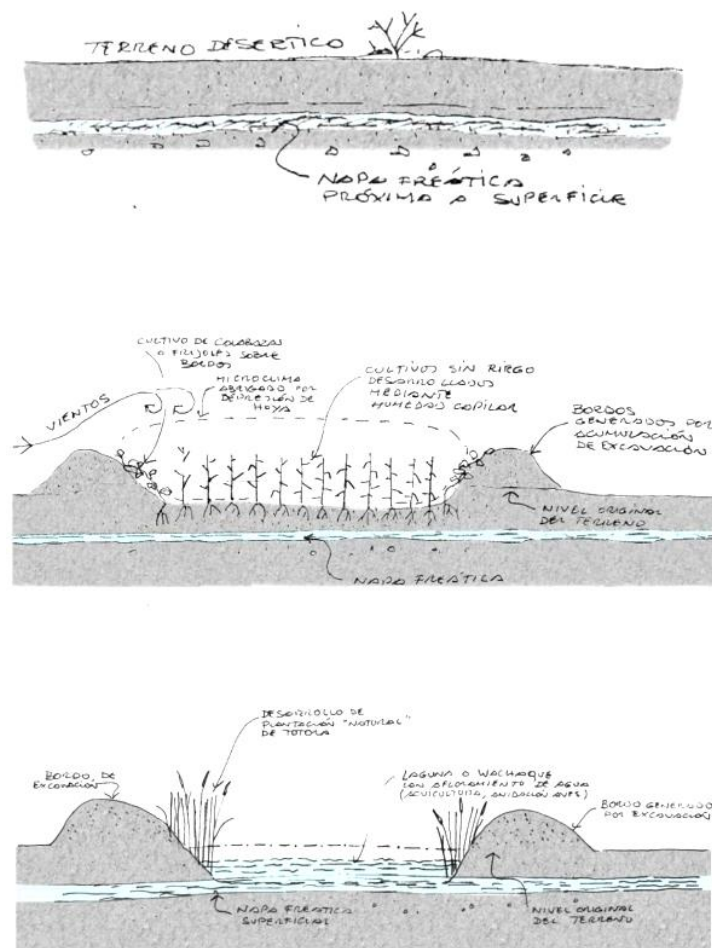 TERRENO DESERTICO
NAPA FREÁTICA
PRÓXIMA A SUPERFICIE
CULTIVO DE CALABAZAS
O FRIJOLES SOBRE
BORDOS
MICROCLIMA
ABRIGADO POR
DEPRESIÓN DE
HOYA
VIENTOS
CULTIVOS SIN RIEGO
DESARROLLADOS
MEDIANTE
HUMEDAD CAPILAR
BORDOS
GENERADOS POR
ACUMULACIÓN
DE EXCAVACIÓN
NIVEL ORIGINAL
DEL TERRENO
NAPA FREÁTICA
DESARROLLO DE
PLANTACIÓN "NATURAL"
DE TOTORA
BORDO DE
EXCAVACIÓN
LAGUNA O WACHAQUE
CON AFLORAMIENTO DE AGUA
(ACUICULTURA, ANIDACIÓN AVES)
BORDO GENERADO
POR EXCAVACIÓN
NAPA FREÁTICA
SUPERFICIAL
NIVEL ORIGINAL
DEL TERRENO